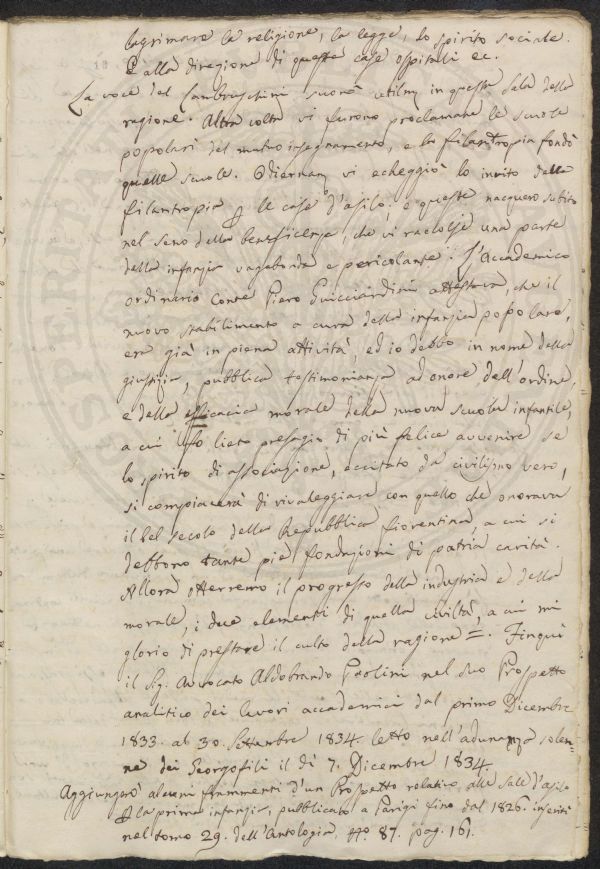 lagrimare la religione, la legge, lo spirito sociale.
E alla direzione di queste case ospitali ec.
La voce del Lambruschini suonò utilm in questa sala della
ragione. Altra volta vi furono proclamate le scuole
popolari del mutuo insegnamento, e la filantropia fondò
quelle scuole. Odiernam vi echeggiò lo invito della
filantropia p le case d'asilo, e queste nacquero subito
nel seno della beneficenza, che vi raccolse una parte
della infanzia vagabonda e pericolante. L'Accademico
ordinario Conte Piero Guicciardini attestava, che il
nuovo stabilimento a cura della infanzia popolare,
era già in piena attività, ed io debbo in nome della
giustizia, pubblica testimonianza ad onore dell'ordine,
e della efficacia morale della nuova scuola infantile,
a cui fo lieto presagio di più felice avvenire se
lo spirito di associazione, eccitato da civilismo vero,
si compiacerà di rivaleggiare con quello che onorava
il bel secolo della Repubblica fiorentina, a cui si
debbono tante pie fondazioni di patria carità.
Allora otterremo il progresso della industria e della
morale, i due elementi di quella civiltà, a cui mi
glorio di prestare il culto della ragione =. Finqui
il Sig. Avvocato Aldobrando Paolini nel suo Prospetto
analitico dei lavori accademici dal primo Dicembre
1833. al 30. Settembre 1834. letto nell'adunanza solen-
ne dei Georgofili il dì 7. Dicembre 1834.
Aggiungerò alcuni frammenti d'un Prospetto relativo alle Sale d'asilo
p la prima infanzia, pubblicato a Parigi fino dal 1826. inseriti
nel tomo 29. dell'Antologia, No. 87. pag. 161.